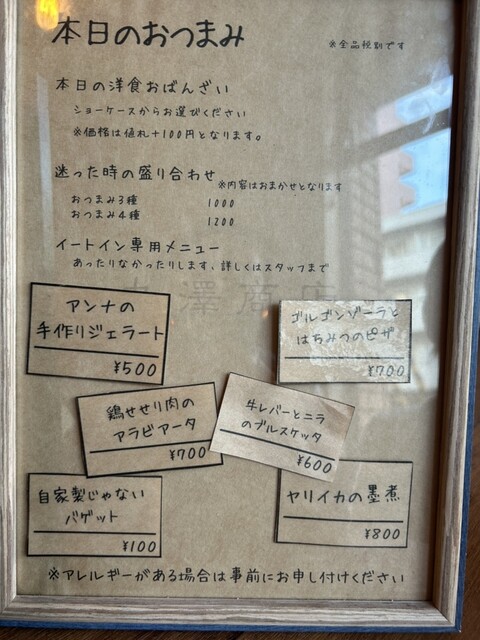 本日のおつまみ
※全品税別です
本日の洋食おばんざい
ショーケースからお選びください
※価格は値札+100円となります。
迷った時の盛り合わせ
※内容はおまかせとなります
おつまみ3種 1000
おつまみ4種 1200
イートイン専用メニュー
あったりなかったりします、詳しくはスタッフまで
澤商店
アンナの
手作りジェラート
¥500
ゴルゴンゾーラと
はちみつのピザ
¥700
鶏せせり肉の
アラビアータ
¥700
牛レバーとニラ
のブルスケッタ
¥600
自家製じゃない
バゲット
¥100
ヤリイカの墨煮
¥800
※アレルギーがある場合は事前にお申し付けください